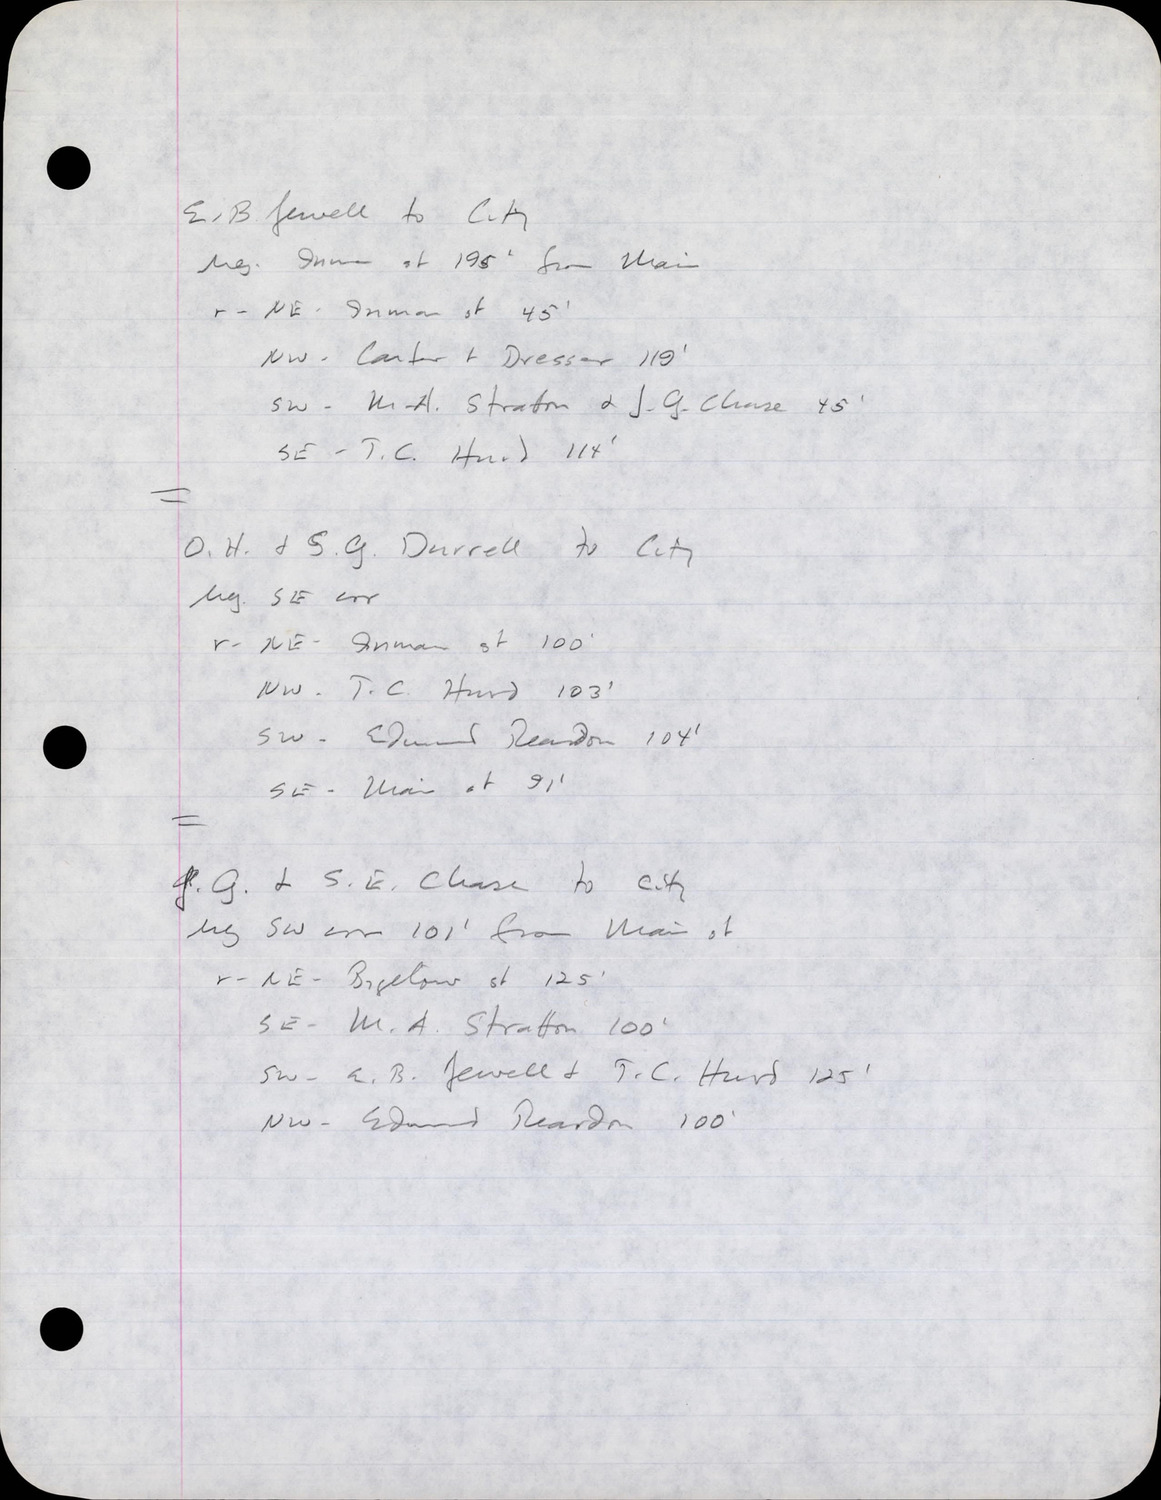 E. B Jewell to City
beg. Inman st 195' from Main
r - NE - Inman st 45'
NW - Carter + Dresser 119'
SW - M. A. Stratton & J. G. Chase 45'
SE - T. C. Hurd 114'
=
O. H. & S. G. Durrell to City
beg. SE cor
r - NE - Inman st 100'
NW - T. C. Hurd 103'
SW - Edmund Reardon 104'
SE - Main st 91'
=
J. G. & S. E. Chase to City
beg SW cor 101' from Main st
r - NE - Bigelow st 125'
SE - M. A. Stratton 100'
SW - E. B. Jewell & T. C. Hurd 125'
NW - Edmund Reardon 100'